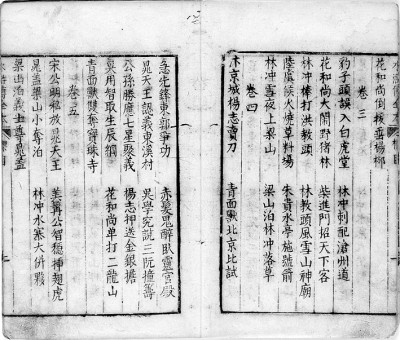 花和尚倒拔垂楊柳
卷三
豹子頭誤入白虎堂 林冲刺配滄州道
花和尚大鬧野猪林 柴進門招天下客
林冲棒打洪教頭 林教頭風雪山神廟
陸虞候火燒草料場 朱貴水亭施號箭
林冲雪夜上梁山 梁山泊林冲落草
卷四
汴京城楊志賣刀 青面獸北京比試
急先鋒東郭爭功 赤髪鬼醉臥靈官殿
晁天王認義東溪村 吳學究説三阮撞籌
公孫勝應七星聚義 楊志押送金銀擔
吳用智取生辰綱 花和尚单打二龍山
青面獸雙奪寶珠寺
卷五
宋公明私放晁天王 美髯公智穩挿翅虎
晁盖梁山小奪泊 林冲水寨大併火
梁山泊義士尊晁盖